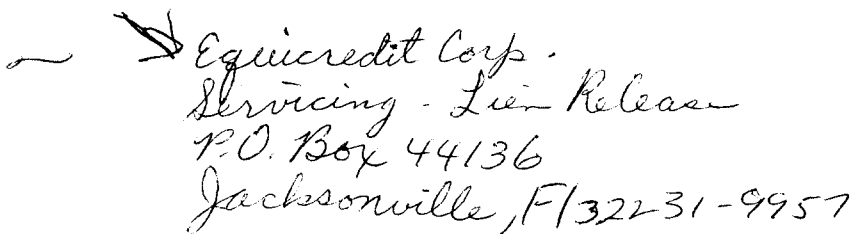 Equicredit Corp.
Servicing - Lien Release
P.O. Box 44136
Jacksonville, Fl 32231-9957